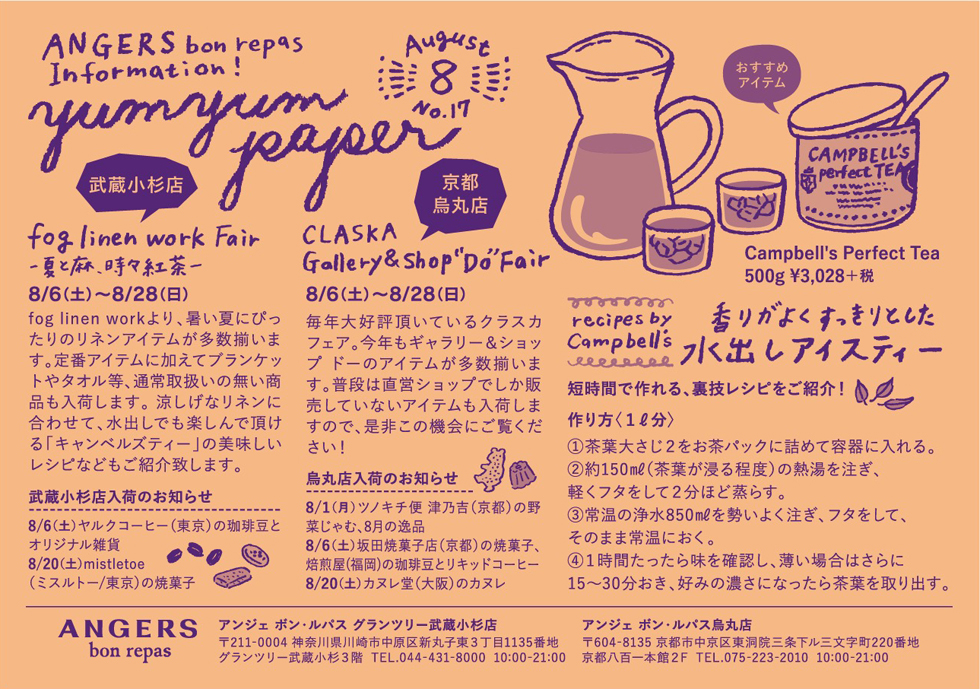 ANGERS bon repas
Information!
yumyum
paper
August
8
No.17
武蔵小杉店
fog linen work Fair
-夏と麻、時々紅茶-
8/6(土)〜8/28(日)
fog linen workより、暑い夏にぴっ
たりのリネンアイテムが多数揃いま
す。定番アイテムに加えてブランケッ
トやタオル等、通常取扱いの無い商
品も入荷します。涼しげなリネンに
合わせて、水出しでも楽しんで頂け
る「キャンベルズティー」の美味しい
レシピなどもご紹介致します。
武蔵小杉店入荷のお知らせ
8/6(土)ヤルクコーヒー(東京)の珈琲豆と
オリジナル雑貨
8/20(土)mistletoe
(ミスルトー/東京)の焼菓子
京都
烏丸店
CLASKA
Gallery&Shop"Do"Fair
8/6(土)〜8/28(日)
毎年大好評頂いているクラスカ
フェア。今年もギャラリー&ショッ
プ ドーのアイテムが多数揃いま
す。普段は直営ショップでしか販
売していないアイテムも入荷しま
すので、是非この機会にご覧くだ
さい!
烏丸店入荷のお知らせ
8/1(月)ツノキチ便 津乃吉(京都)の野
菜じゃむ、8月の逸品
8/6(土)坂田焼菓子店(京都)の焼菓子、
焙煎屋(福岡)の珈琲豆とリキッドコーヒー
8/20(土)カヌレ堂(大阪)のカヌレ
おすすめ
アイテム
CAMPBELL'S
perfect TEA
Campbell's Perfect Tea
500g ¥3,028+税
recipes by
Campbell's
香りがよくすっきりとした
水出しアイスティー
短時間で作れる、裏技レシピをご紹介!
作り方〈1ℓ分〉
①茶葉大さじ2をお茶パックに詰めて容器に入れる。
②約150㎖(茶葉が浸る程度)の熱湯を注ぎ、
軽くフタをして2分ほど蒸らす。
③常温の浄水850㎖を勢いよく注ぎ、フタをして、
そのまま常温におく。
④1時間たったら味を確認し、薄い場合はさらに
15〜30分おき、好みの濃さになったら茶葉を取り出す。
ANGERS
bon repas
アンジェ ボン・ルパス グランツリー武蔵小杉店
〒211-0004 神奈川県川崎市中原区新丸子東3丁目1135番地
グランツリー武蔵小杉3階 TEL.044-431-8000 10:00-21:00
アンジェ ボン・ルパス烏丸店
〒604-8135 京都市中京区東洞院三条下ル三文字町220番地
京都八百一本館2F TEL.075-223-2010 10:00-21:00